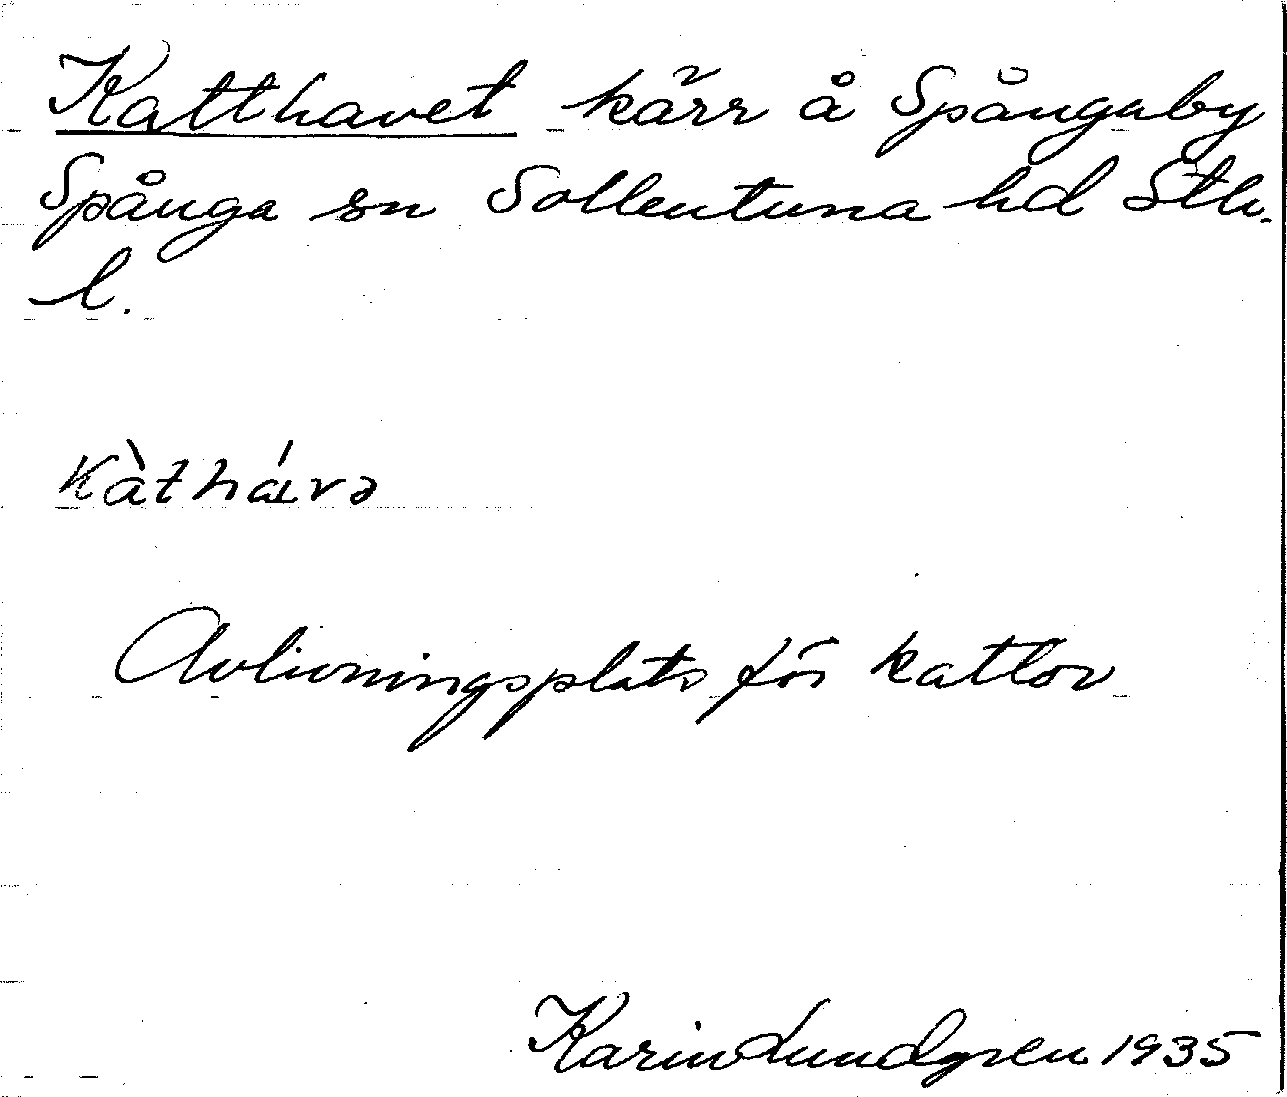 Katthavet kärr å Spångaby
Spånga sn Sollentuna hd Sth.
l.
kàthá̱və
Avlivningsplats för kattor
Karin Lundgren 1935